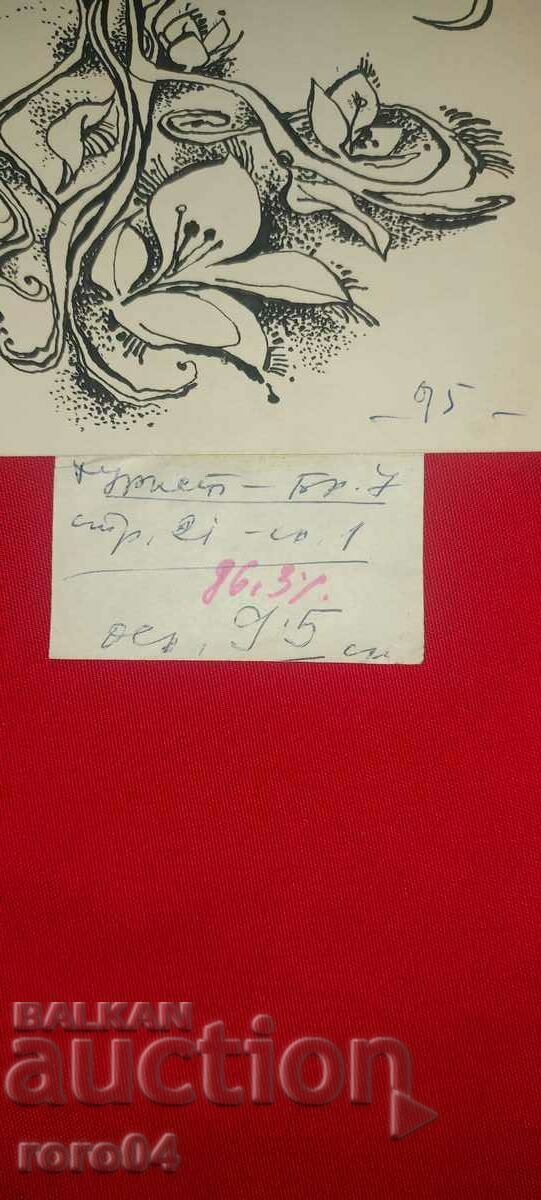 - 95 -
Турист - Бр. 7
стр. 21 - сн. 1
86.3%
осн. 9.5 см
BALKAN
auction
roro04